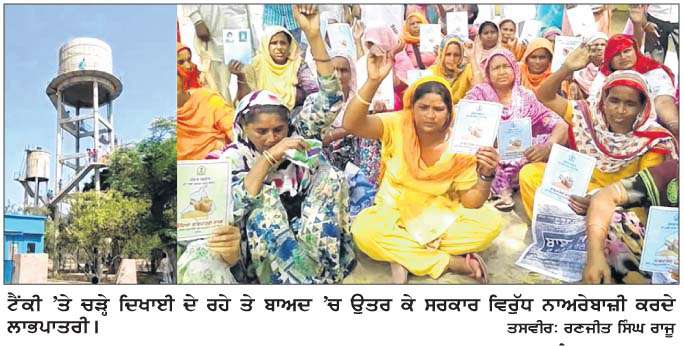 ਟੈਂਕੀ ’ਤੇ ਚੜ੍ਹੇ ਦਿਖਾਈ ਦੇ ਰਹੇ ਤੇ ਬਾਅਦ ’ਚ ਉਤਰ ਕੇ ਸਰਕਾਰ ਵਿਰੁੱਧ ਨਾਅਰੇਬਾਜ਼ੀ ਕਰਦੇ
ਲਾਭਪਾਤਰੀ।
ਤਸਵੀਰ: ਰਣਜੀਤ ਸਿੰਘ ਰਾਜੂ